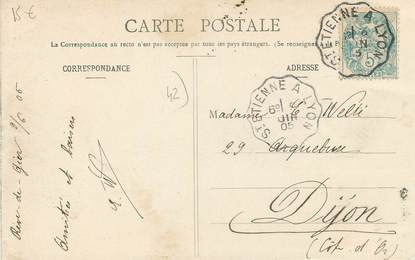 15 €
CARTE POSTALE
La Correspondance au recto n'est pas acceptée par tous les pays étrangers. (Se renseigner à la
CORRESPONDANCE
ADRESSE
42
ST-ETIENNE A LYON
6
JUIN
05
ST-ETIENNE A LYON
JUIN
05
Madame Welti
29 Arquebuse
Dijon
(Côt. d'Or)
Rive-de-Gier 9/6 05
Amitiés et baisers